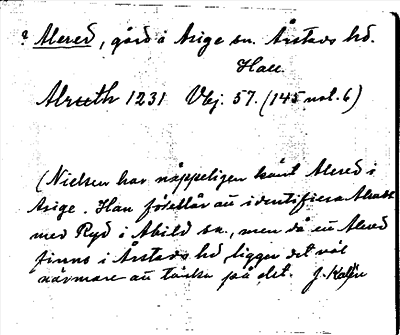 ? Alered, gård i Asige sn. Årstads hd.
Hall.
Alruth 1231 Vbj. 57. (145 not. 6)
(Nielsen har näppeligen känt Alered i
Asige. Han föreslår att identifiera Alruth
med Ryd i Abild sn, men då ett Alered
finns i Årstads hd, ligger det väl
närmare att tänka på det. J. Kalén